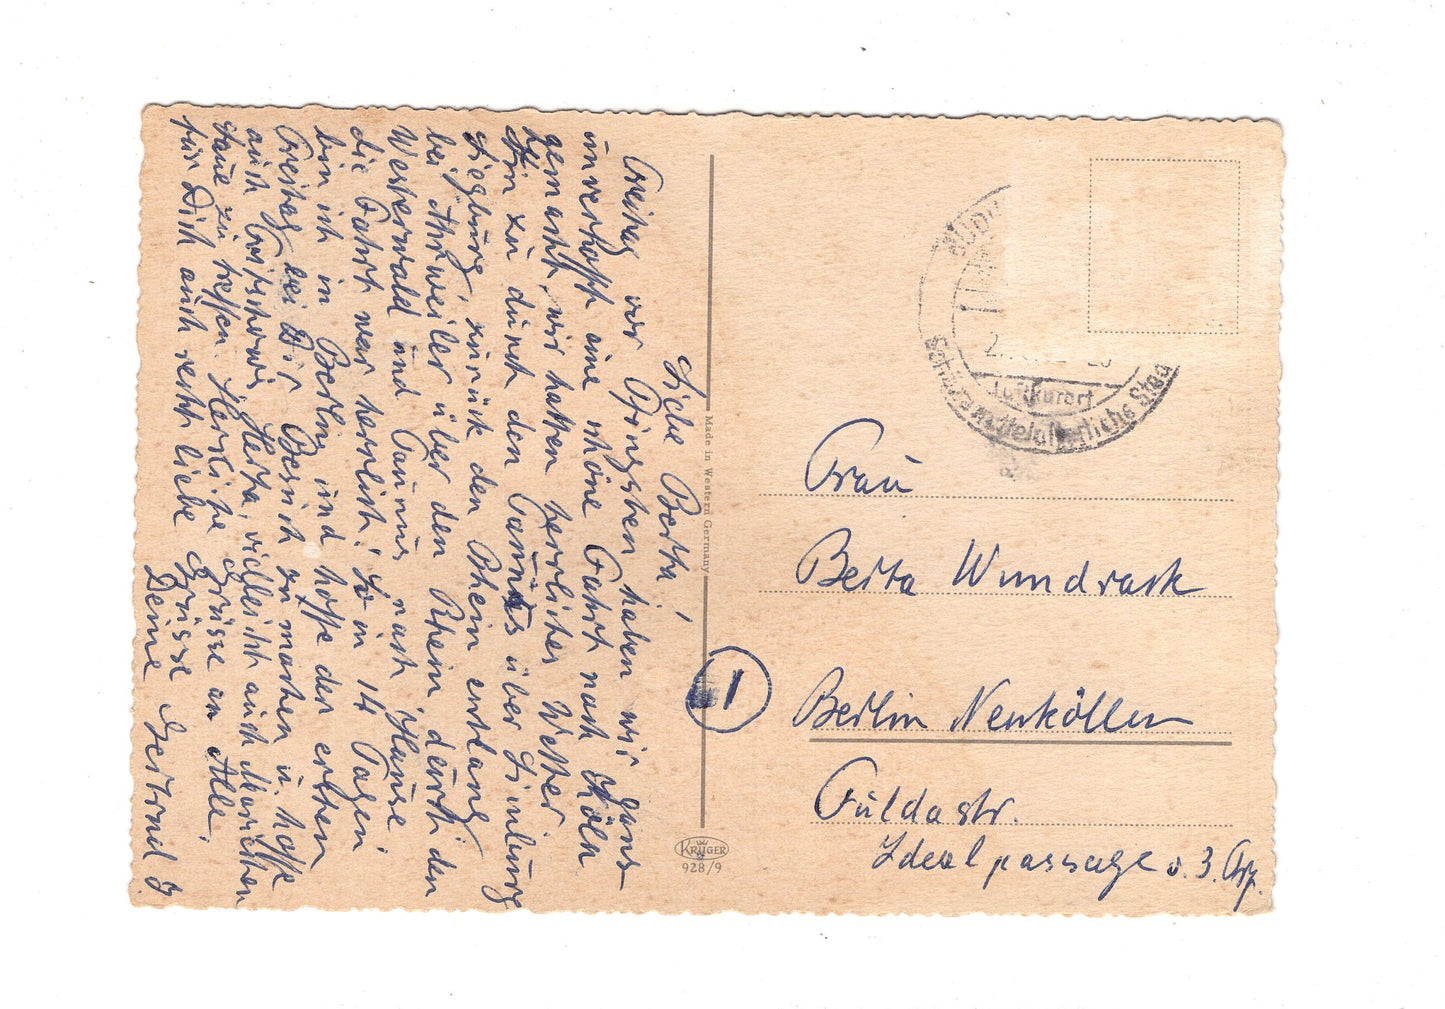 Liebe Berta!
Freitag vor Pfingsten haben wir ganz
unverhofft eine schöne Fahrt nach Köln
gemacht, wir hatten herrliches Wetter
Hin zu durch den Taunus über Limburg
Siegburg, zurück den Rhein entlang
bei Ahrweiler über den Rhein, durch den
Westerwald und Taunus nach Hause
die Fahrt war herrlich! So in 14 Tagen
bin ich in Berlin und hoffe den ersten
Freitag bei Dir Besuch zu machen u. hoffe
auch Herta, vielleicht auch
zu treffen. Herzliche Grüsse an Alle.
für Dich auch recht liebe Grüsse
Deine Gertrud
Made in Western Germany
KRÜGER
928/9
2
Luftkurort
Schöne mittelalterliche Stadt
Frau
Berta Wundrack
1
Berlin Neukölln
Fuldastr.
Idealpassage v. 3.